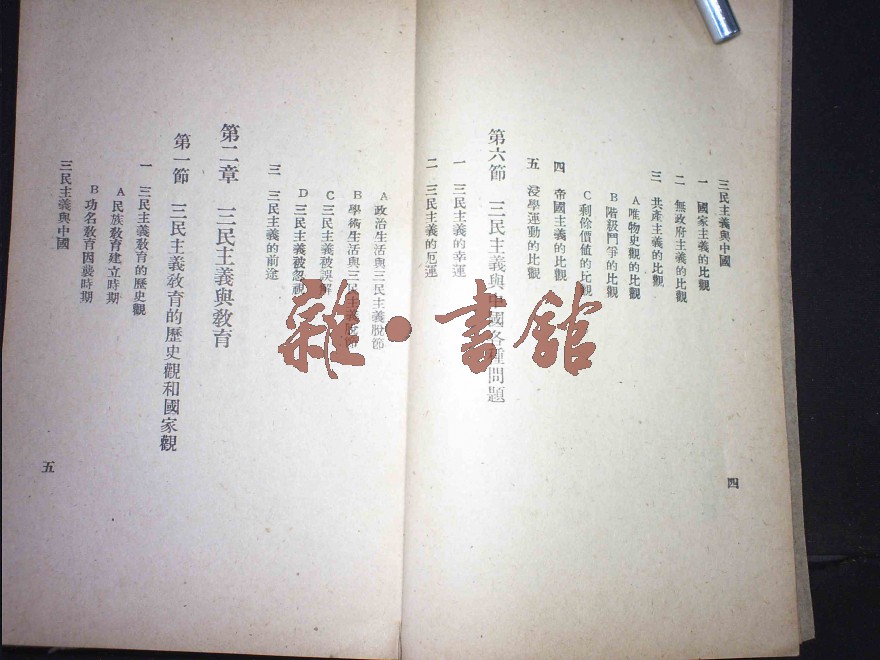 三民主義與中國
一 國家主義的比觀
二 無政府主義的比觀
三 共產主義的比觀
A 唯物史觀的比觀
B 階級鬥爭的比觀
C 剩餘價值的比觀
四 帝國主義的比觀
五 浸學運動的比觀
第六節 三民主義與中國各種問題
一 三民主義的幸運
二 三民主義的厄運
四
A 政治生活與三民主義脫節
B 學術生活與三民主義脫節
C 三民主義被誤解
D 三民主義被忽視
三 三民主義的前途
第二章 三民主義與教育
第一節 三民主義教育的歷史觀和國家觀
一 三民主義教育的歷史觀
A 民族教育建立時期
B 功名教育因襲時期
三民主義與中國
五
雜·書館